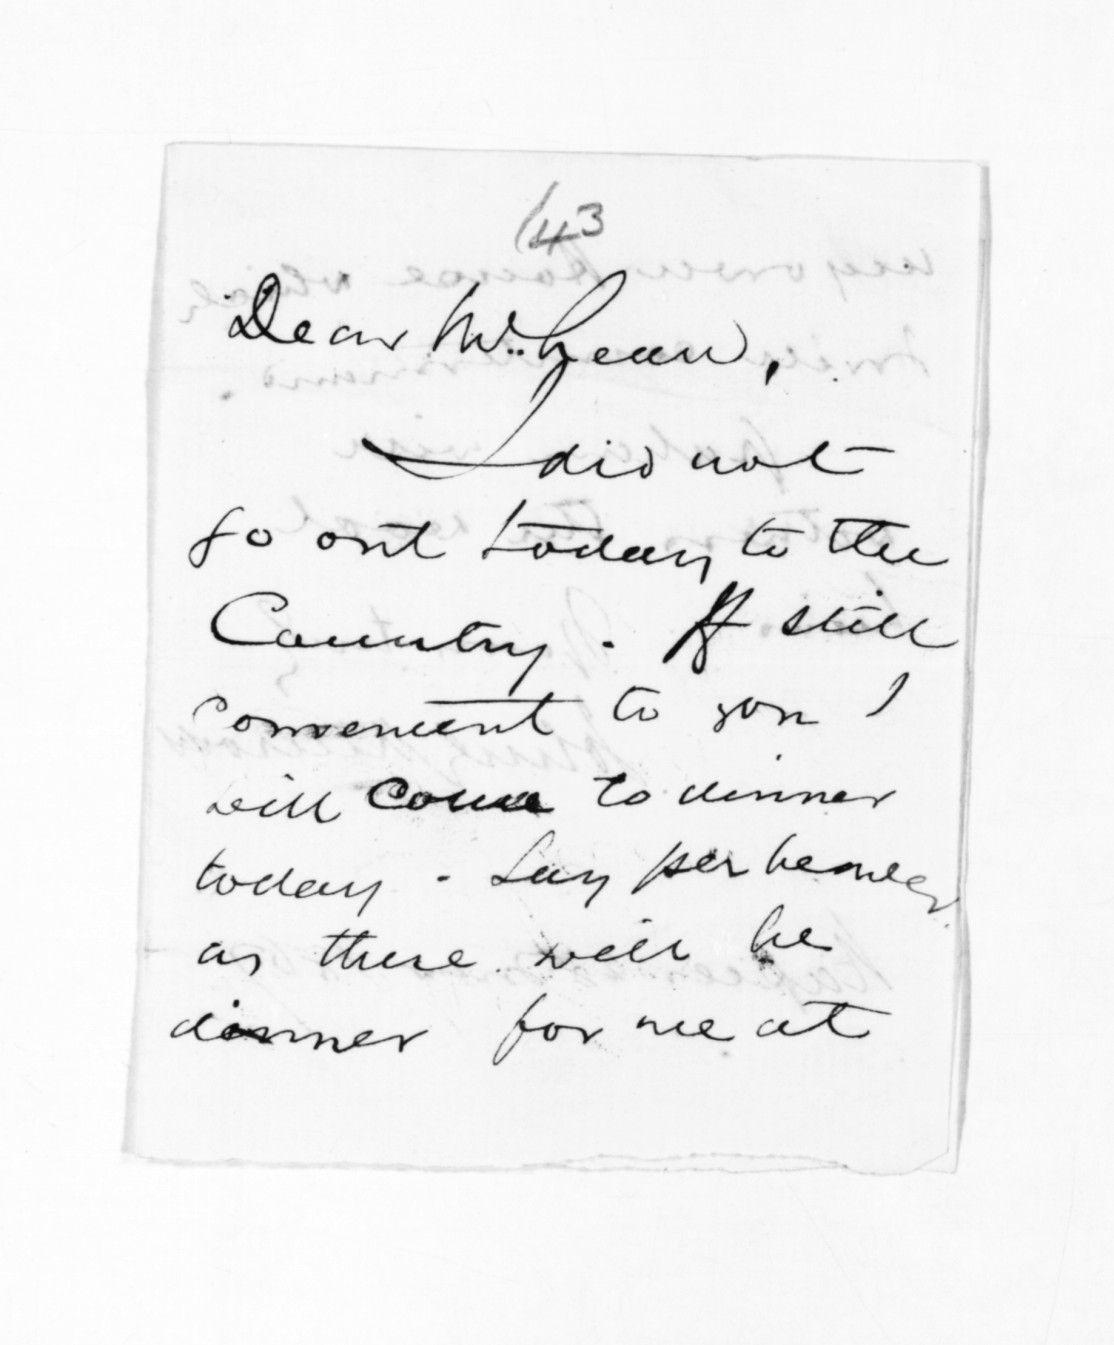 143
Dear McLean,
I did not
go out today to the
Country. If still
convenient to you I
will come to dinner
today. Say per bearer
as there will be
dinner for me at